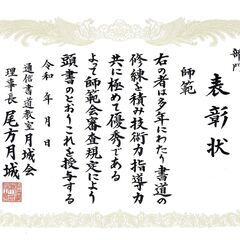 師範
表彰状
師範
右の者は多年にわたり書道の
修練を積み技術力指導力
共に極めて優秀である
よって師範会審査規定により
頭書のとおりこれを授与する
令和 年 月 日
通信書道教室月城会
理事長 尾方月城